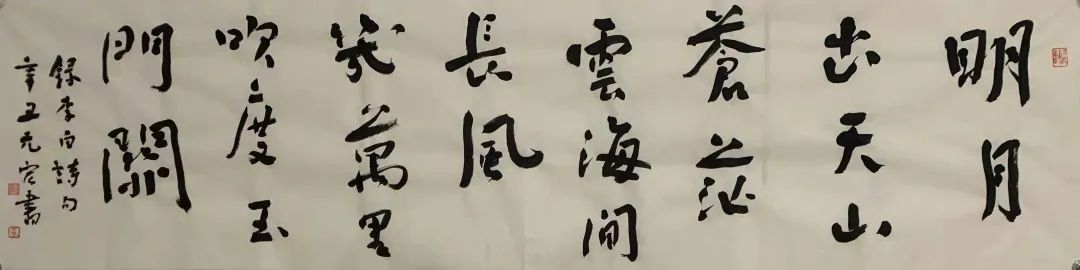 明月
出天山
蒼茫
雲海間
長風
幾萬里
吹度玉
門關
録李白詩句
辛丑書